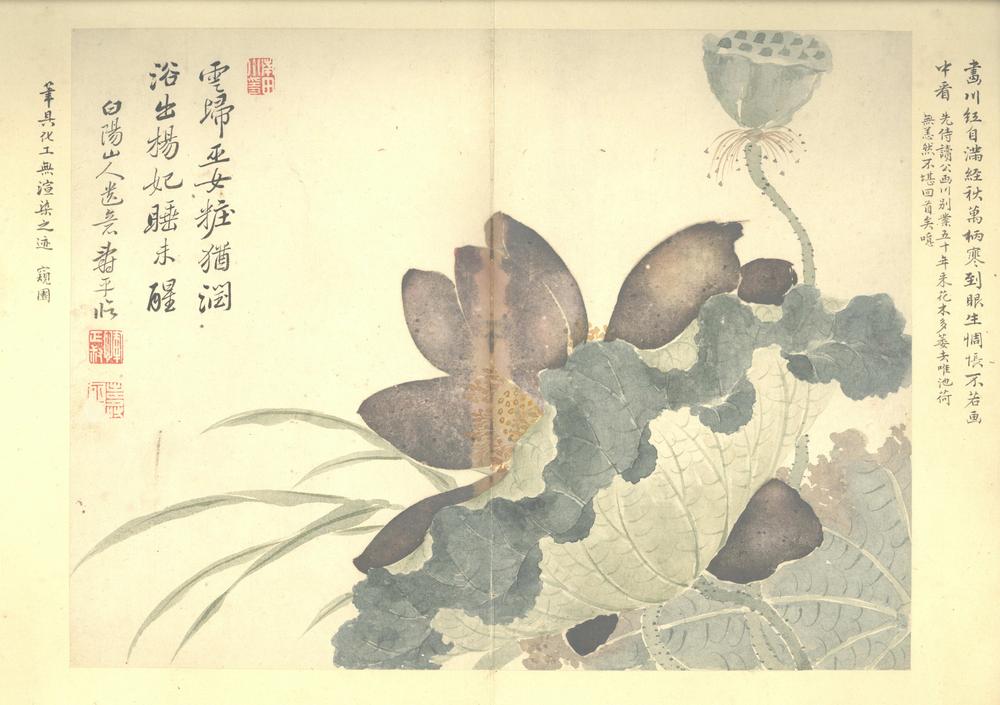 畫川紅自滿經秋萬柄寒到眼生惆悵不若画
中看
先侍讀公画川别業五十年来花木多萎去唯池荷
無恙然不堪回首矣噫
雲歸巫女粧猶潤
浴出楊妃睡未醒
白陽山人遺意壽平臨
筆具化工無渲染之迹 窺園